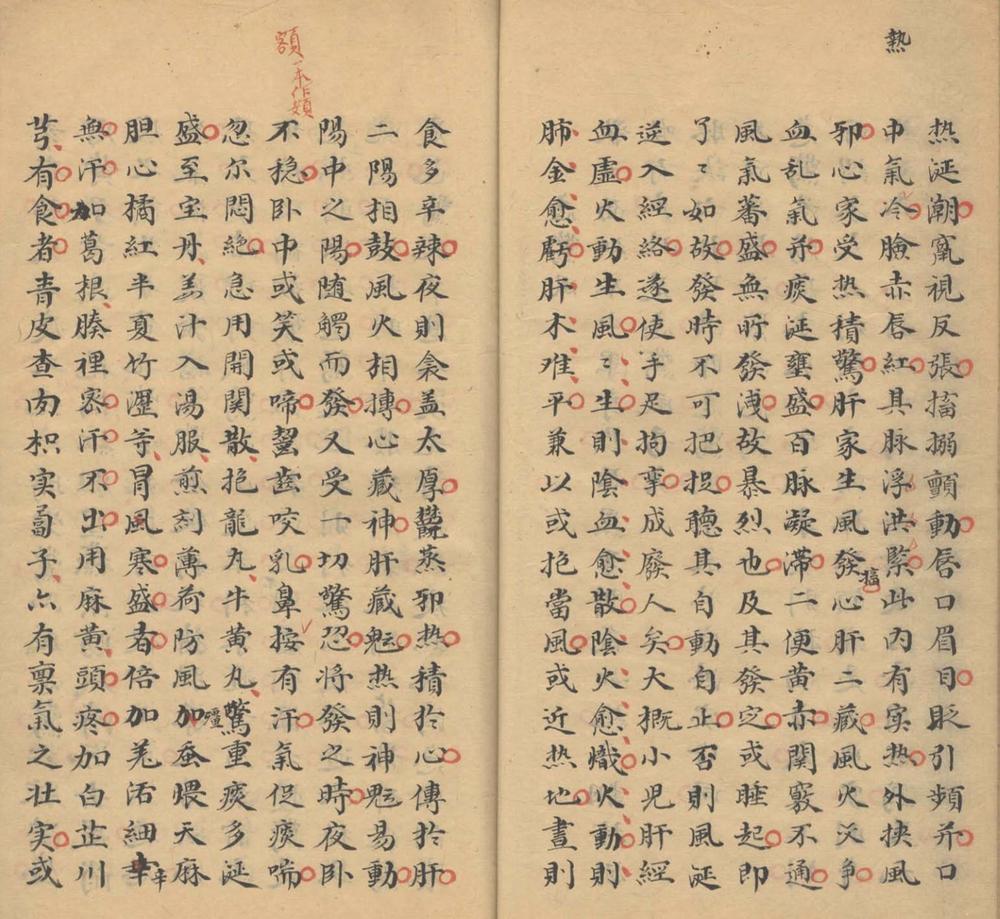 熱
热涎潮竄視反張搐搦顫動唇口眉目眨引頻并口
中氣冷臉赤唇紅其脉浮洪緊此內有实热外挾風
邪心家受热積驚肝家生風發搐心肝二藏風火交争
血乱氣并痰涎壅盛百脉凝滞二便黄赤関竅不通
風氣蕃盛無所發洩故暴烈也及其發定或睡起即
了〻如故發時不可把捉聽其自動自止否則風涎
逆入經絡遂使手足拘挛成廢人矣大概小児肝經
血虛火動生風〻生則陰血愈散陰火愈熾火動則
肺金愈虧肝木难平兼以或抱當風或近热地晝則
額一本作類
食多辛辣夜則衾盖太厚鬱蒸邪热積於心傳於肝
二陽相鼓風火相摶心藏神肝藏魂热則神魂易動
陽中之陽随觸而發又受一切驚忍将發之時夜卧
不稳卧中或笑或啼齧齒咬乳鼻按有汗氣促痰喘
忽尔悶絶急用開関散抱龍丸牛黄丸驚重痰多涎
盛至宝丹姜汁入湯服煎剂薄荷防風加殭蚕煨天麻
胆心橘紅半夏竹瀝等冐風寒盛者倍加羌活細辛
無汗加葛根腠裡密汗不出用麻黄頭疼加白芷川
芎有食者青皮查肉枳实蔔子亦有禀氣之壮实或